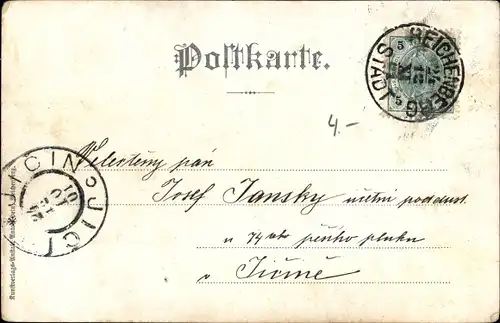 Postkarte.
5
REICHENBERG
STADT
4.-
JIČIN JIČ
Velectěný pán
Josef Jansky učetní poddůst.
u 74ého pěšího pluku
v Jičíně